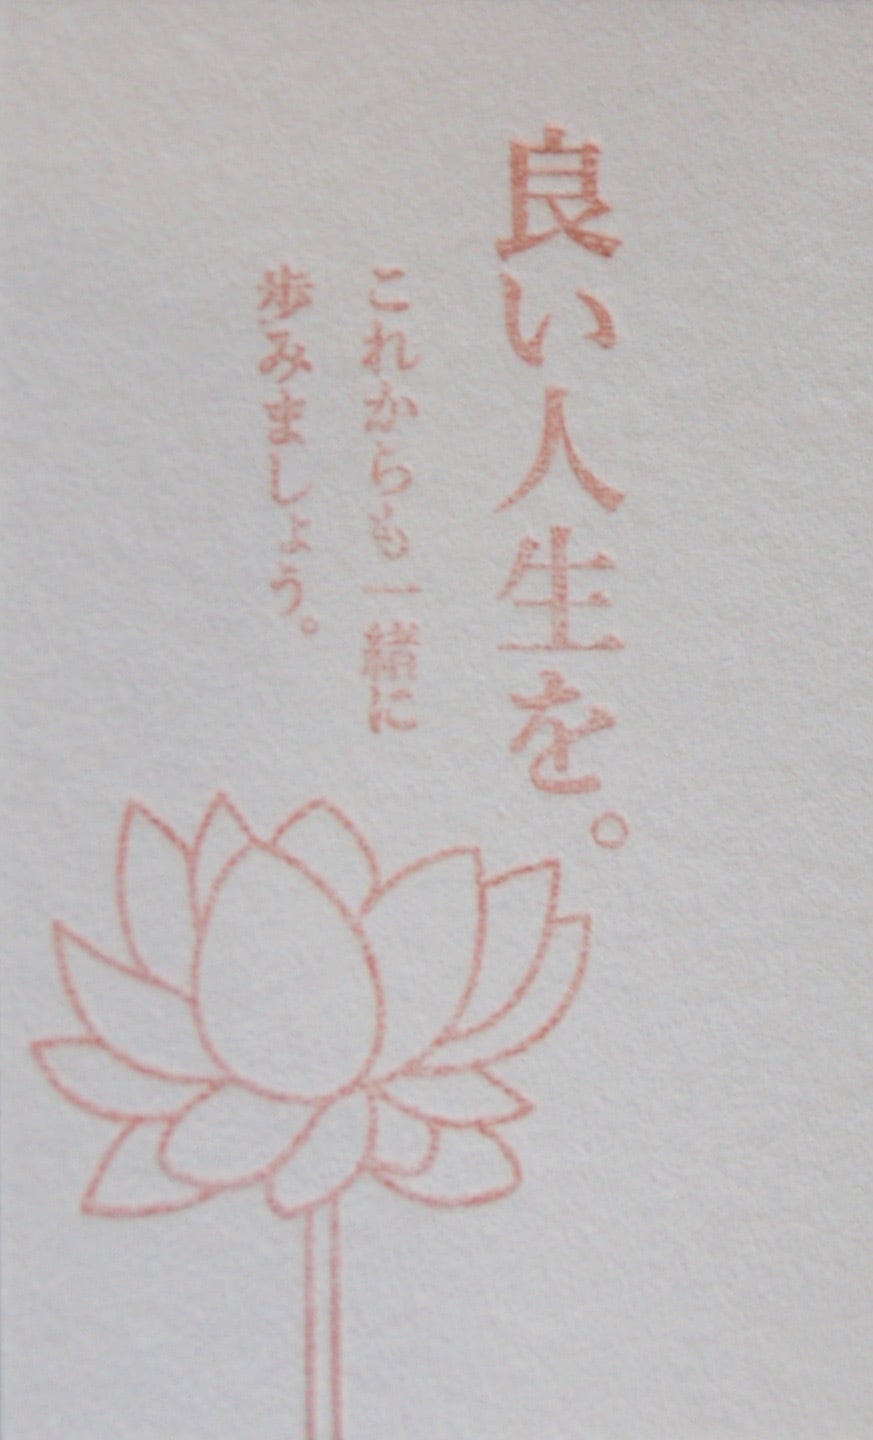 良い人生を。
これからも一緒に
歩みましょう。